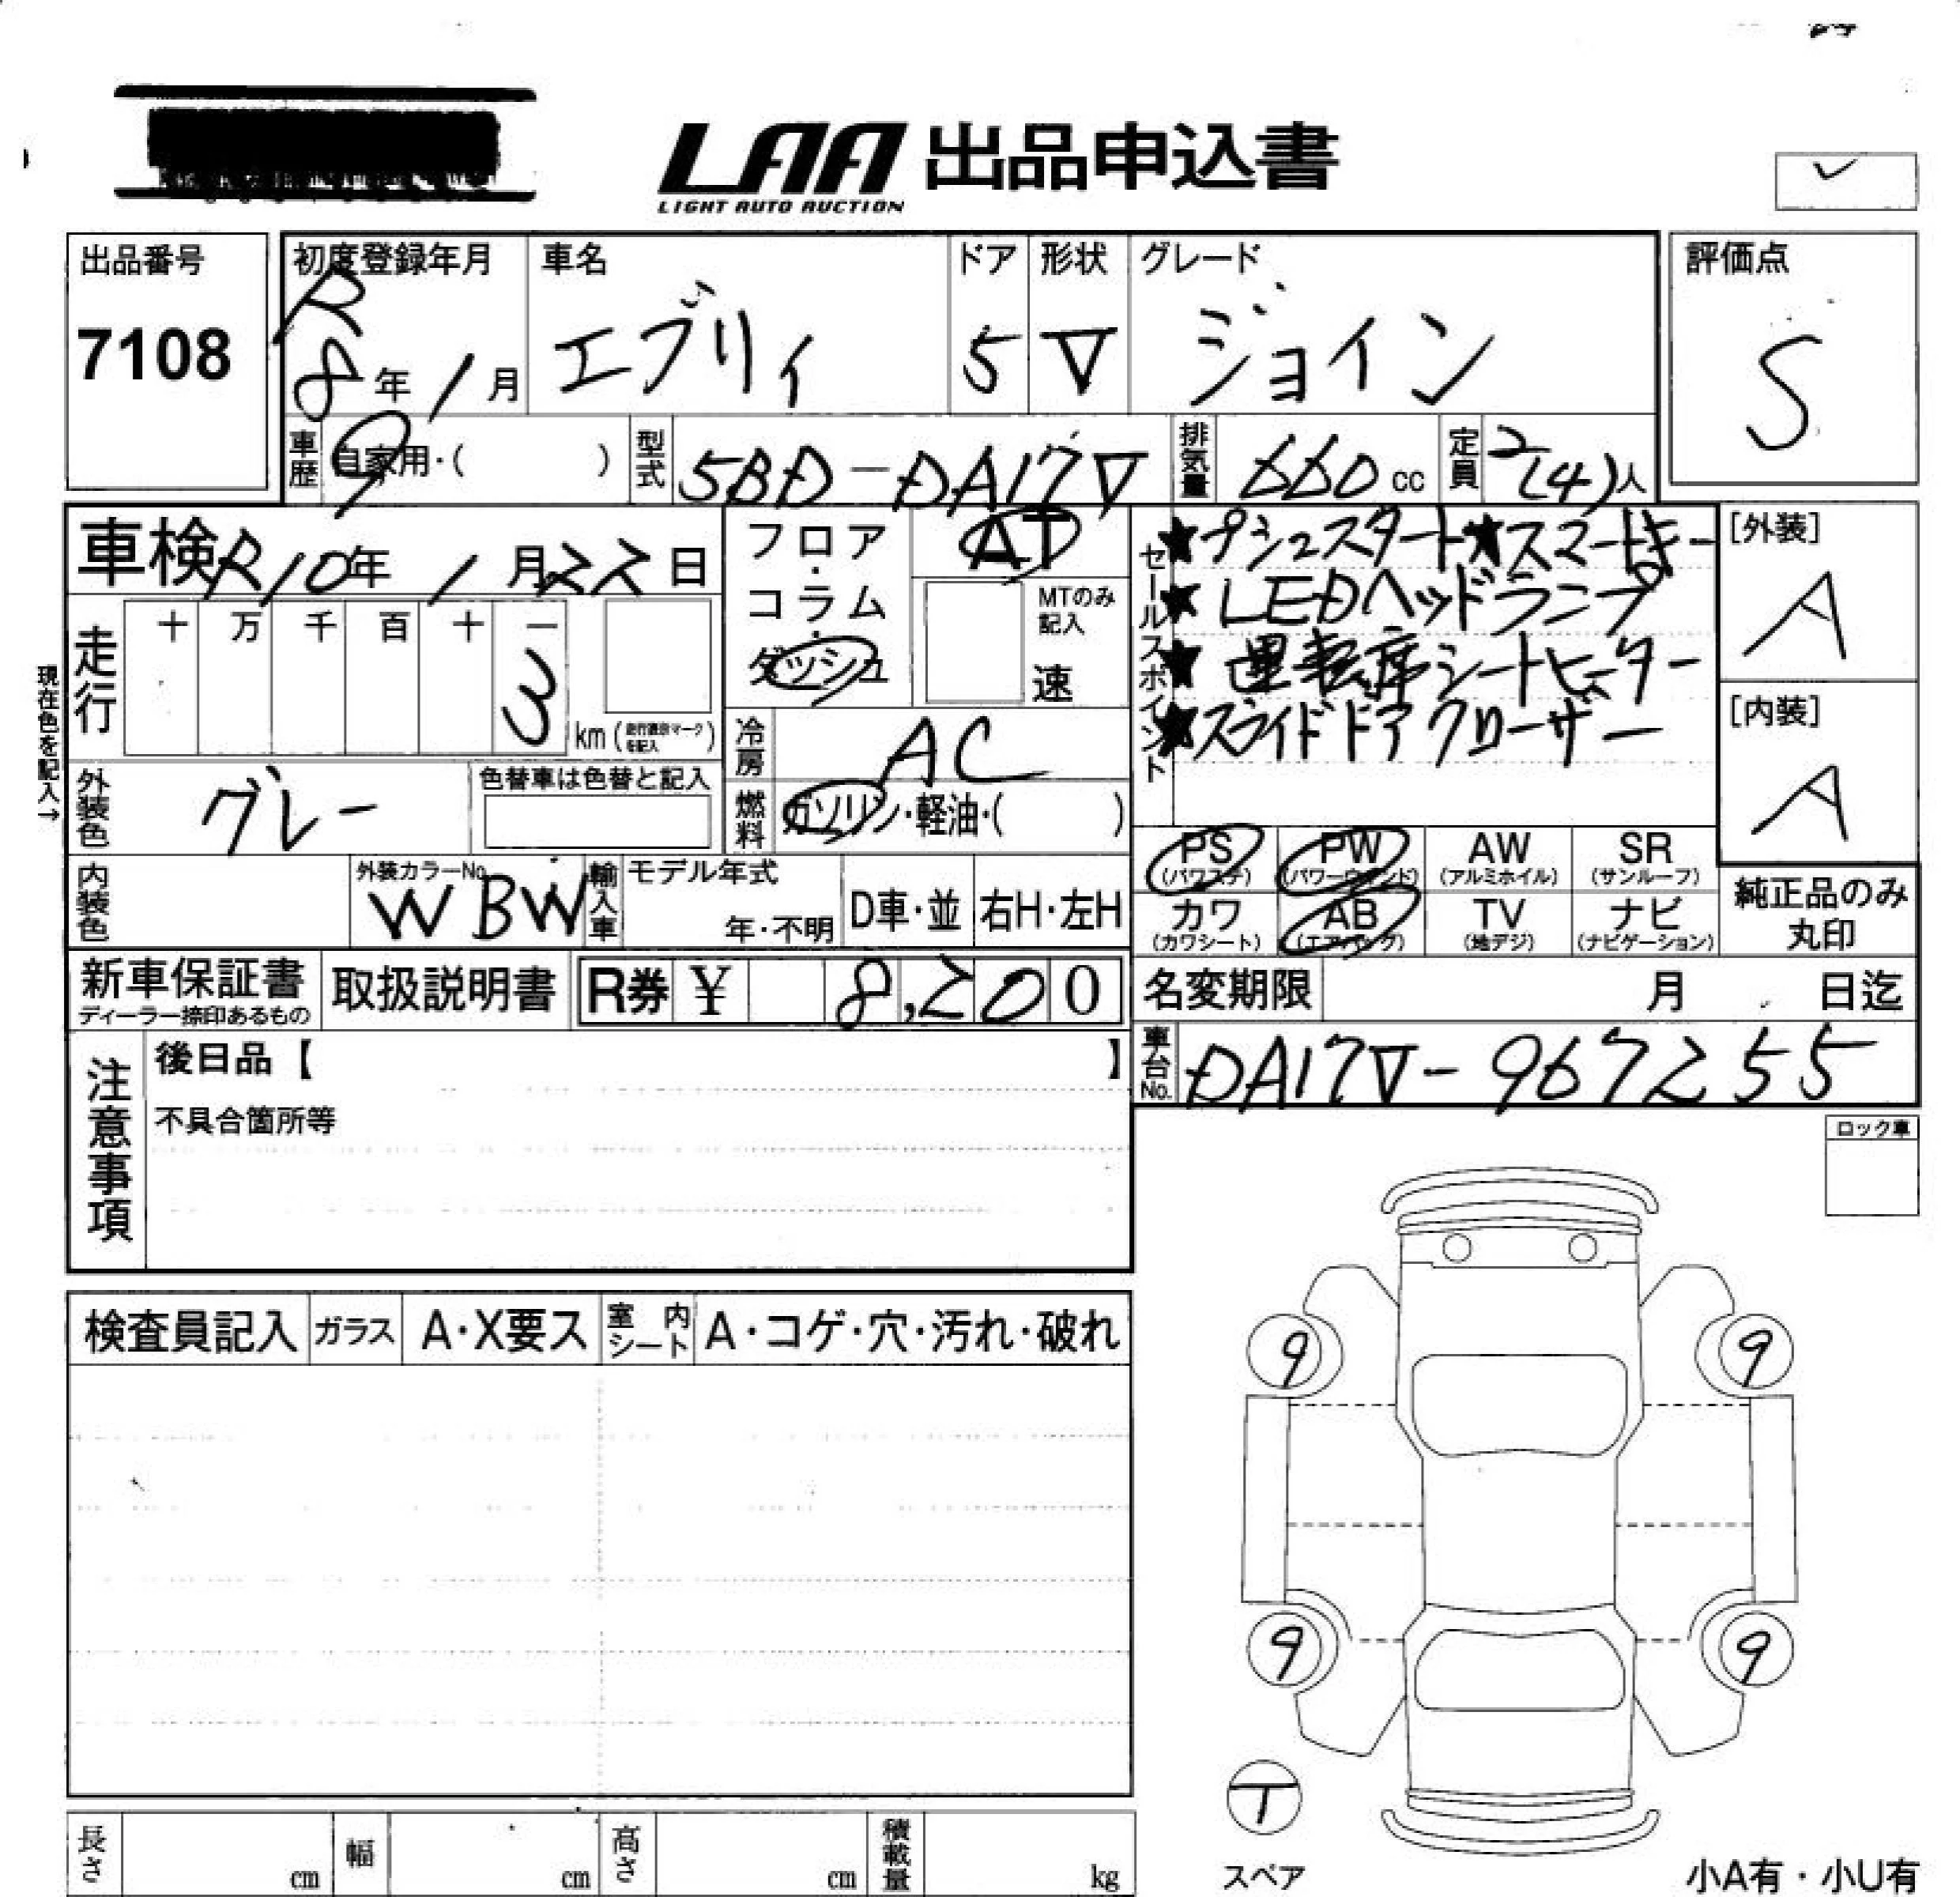 LAA 出品申込書
LIGHT AUTO AUCTION
出品番号
7108
初度登録年月
R
8年1月
車名
エブリィ
ドア
5
形状
V
グレード
ジョイン
評価点
S
車歴 自家用・( )
型式 5BD-DA17V
排気量 660 cc
定員 2(4)人
車検 R10年1月22日
フロア・コラム・ダッシュ
AT
MTのみ記入
速
セールスポイント
★プシュスタート★スマートキー
★LEDヘッドランプ
★運転席シートヒーター
★スライドドアクローザー
[外装]
A
[内装]
A
現在色を記入→
走行 十 万 千 百 十 一
3
km(走行適合マークを記入)
冷房 AC
外装色 グレー
色替車は色替と記入
燃料 ガソリン・軽油・( )
内装色
外装カラーNo.
WBW
輸入車 モデル年式
年・不明
D車・並
右H・左H
PS (パワステ)
PW (パワーウインド)
AW (アルミホイル)
SR (サンルーフ)
カワ (カワシート)
AB (エアバック)
TV (地デジ)
ナビ (ナビゲーション)
純正品のみ
丸印
新車保証書
ディーラー捺印あるもの
取扱説明書
R券 ¥ 8,200
名変期限 月 日迄
車台No. DA17V-967255
注意事項
後日品【 】
不具合箇所等
ロック車
検査員記入
ガラス A・X要ス
室内シート A・コゲ・穴・汚れ・破れ
9
9
9
9
T
スペア
長さ cm
幅 cm
高さ cm
積載量 kg
小A有・小U有